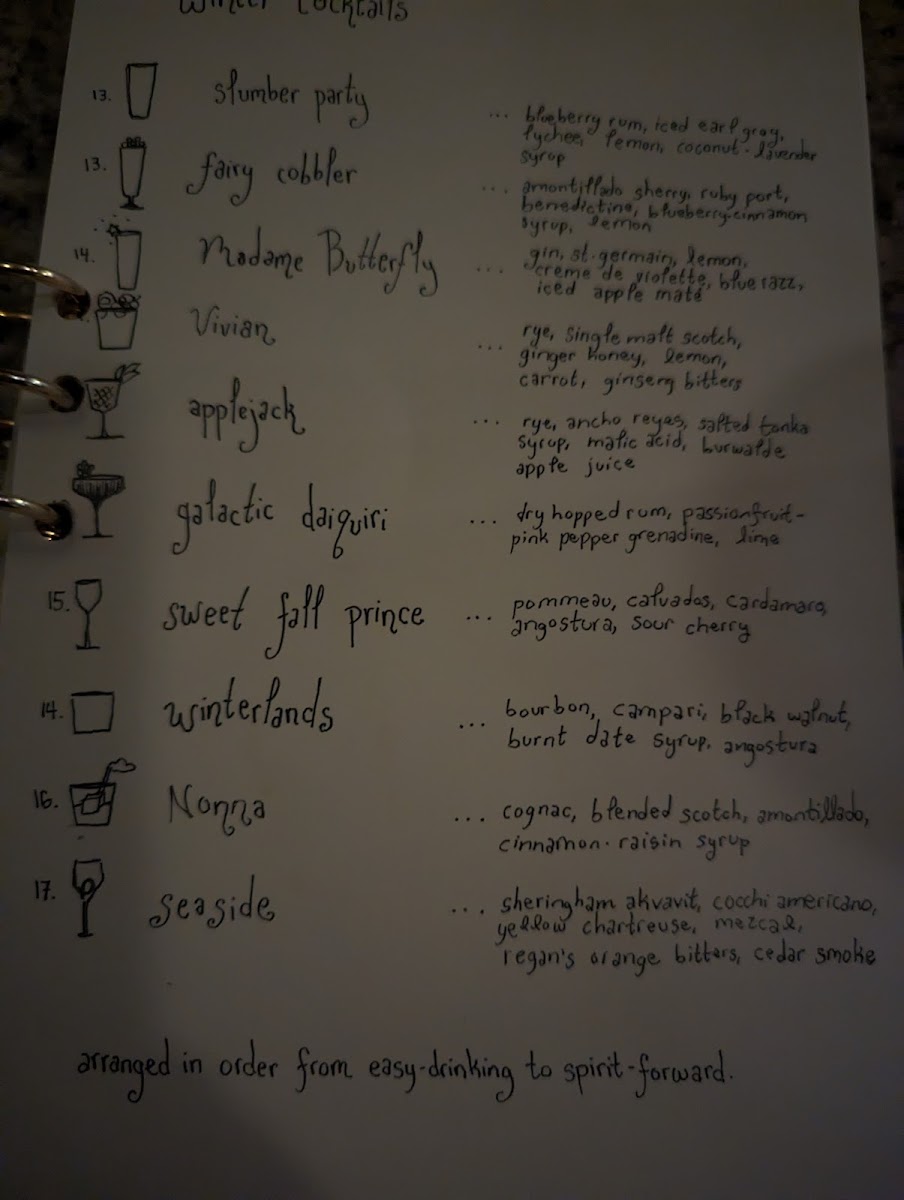 winter cocktails
13. slumber party ... blueberry rum, iced earl gray,
lychee, lemon, coconut-lavender
syrup
13. fairy cobbler ... amontillado sherry, ruby port,
benedictine, blueberry-cinnamon
syrup, lemon
14. Madame Butterfly ... gin, st. germain, lemon,
creme de violette, blue razz,
iced apple maté
Vivian ... rye, single malt scotch,
ginger honey, lemon,
carrot, ginseng bitters
applejack ... rye, ancho reyes, salted tonka
syrup, malic acid, burwalde
apple juice
galactic daiquiri ... dry hopped rum, passionfruit-
pink pepper grenadine, lime
15. sweet fall prince ... pommeau, calvados, cardamaro,
angostura, sour cherry
14. winterlands ... bourbon, campari, black walnut,
burnt date syrup, angostura
16. Nonna ... cognac, blended scotch, amontillado,
cinnamon-raisin syrup
17. seaside ... sheringham akvavit, cocchi americano,
yellow chartreuse, mezcal,
regan's orange bitters, cedar smoke
arranged in order from easy-drinking to spirit-forward.